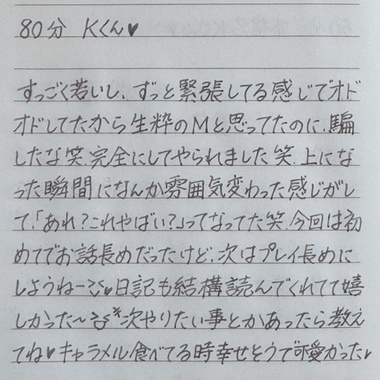 80分 Kくん♥
すっごく若いし、ずっと緊張してる感じでオド
オドしてたから生粋のMと思ってたのに、騙
したな笑、完全にしてやられました笑、上にな
った瞬間になんか雰囲気変わった感じがし
て、「あれ？これやばい？」ってなってた笑、今回は初
めてでお話長めだったけど、次はプレイ長めに
しようねー♥日記も結構読んでくれてて嬉
しかった〜 次やりたい事とかあったら教え
てね♥キャラメル食べてる時幸せそうで可愛かった♥